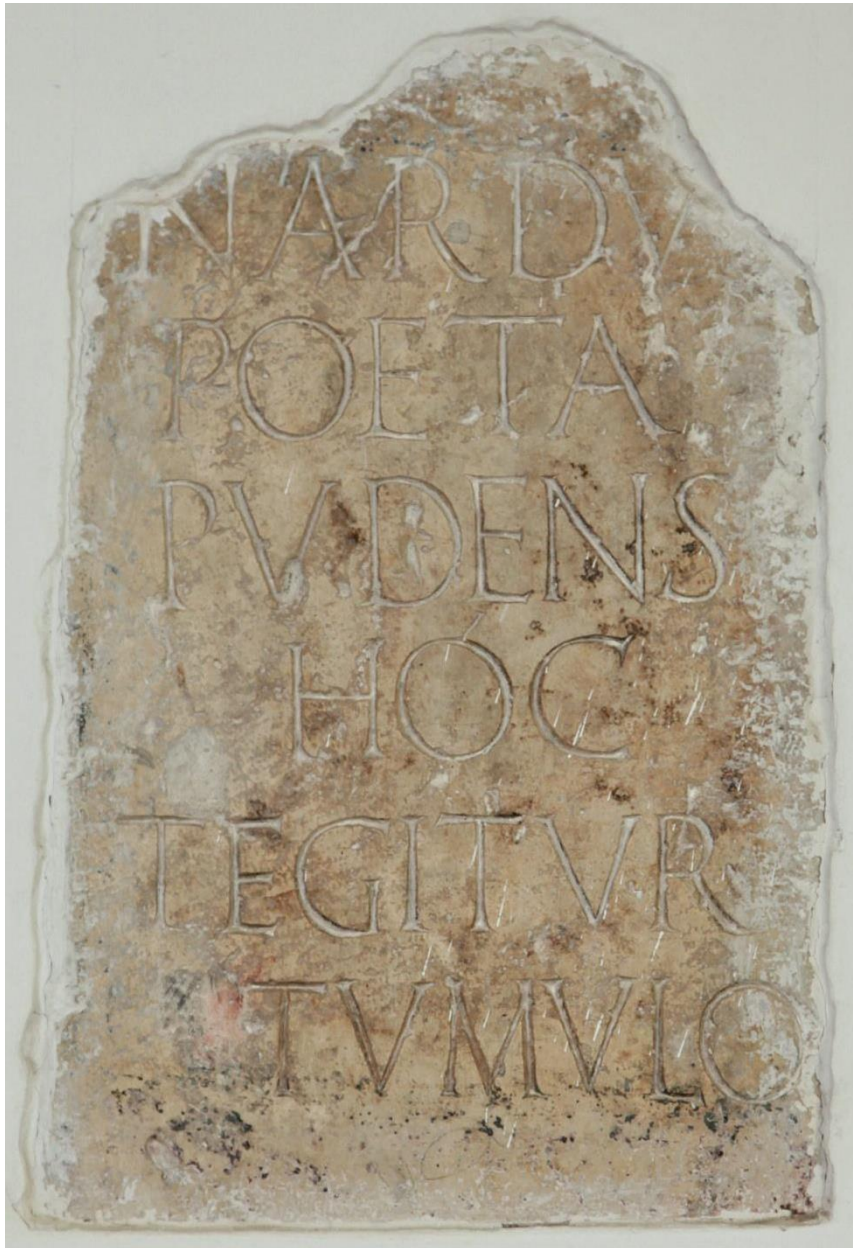 NARDV
POETA
PVDENS
HÓC
TEGITVR
TVMVLO